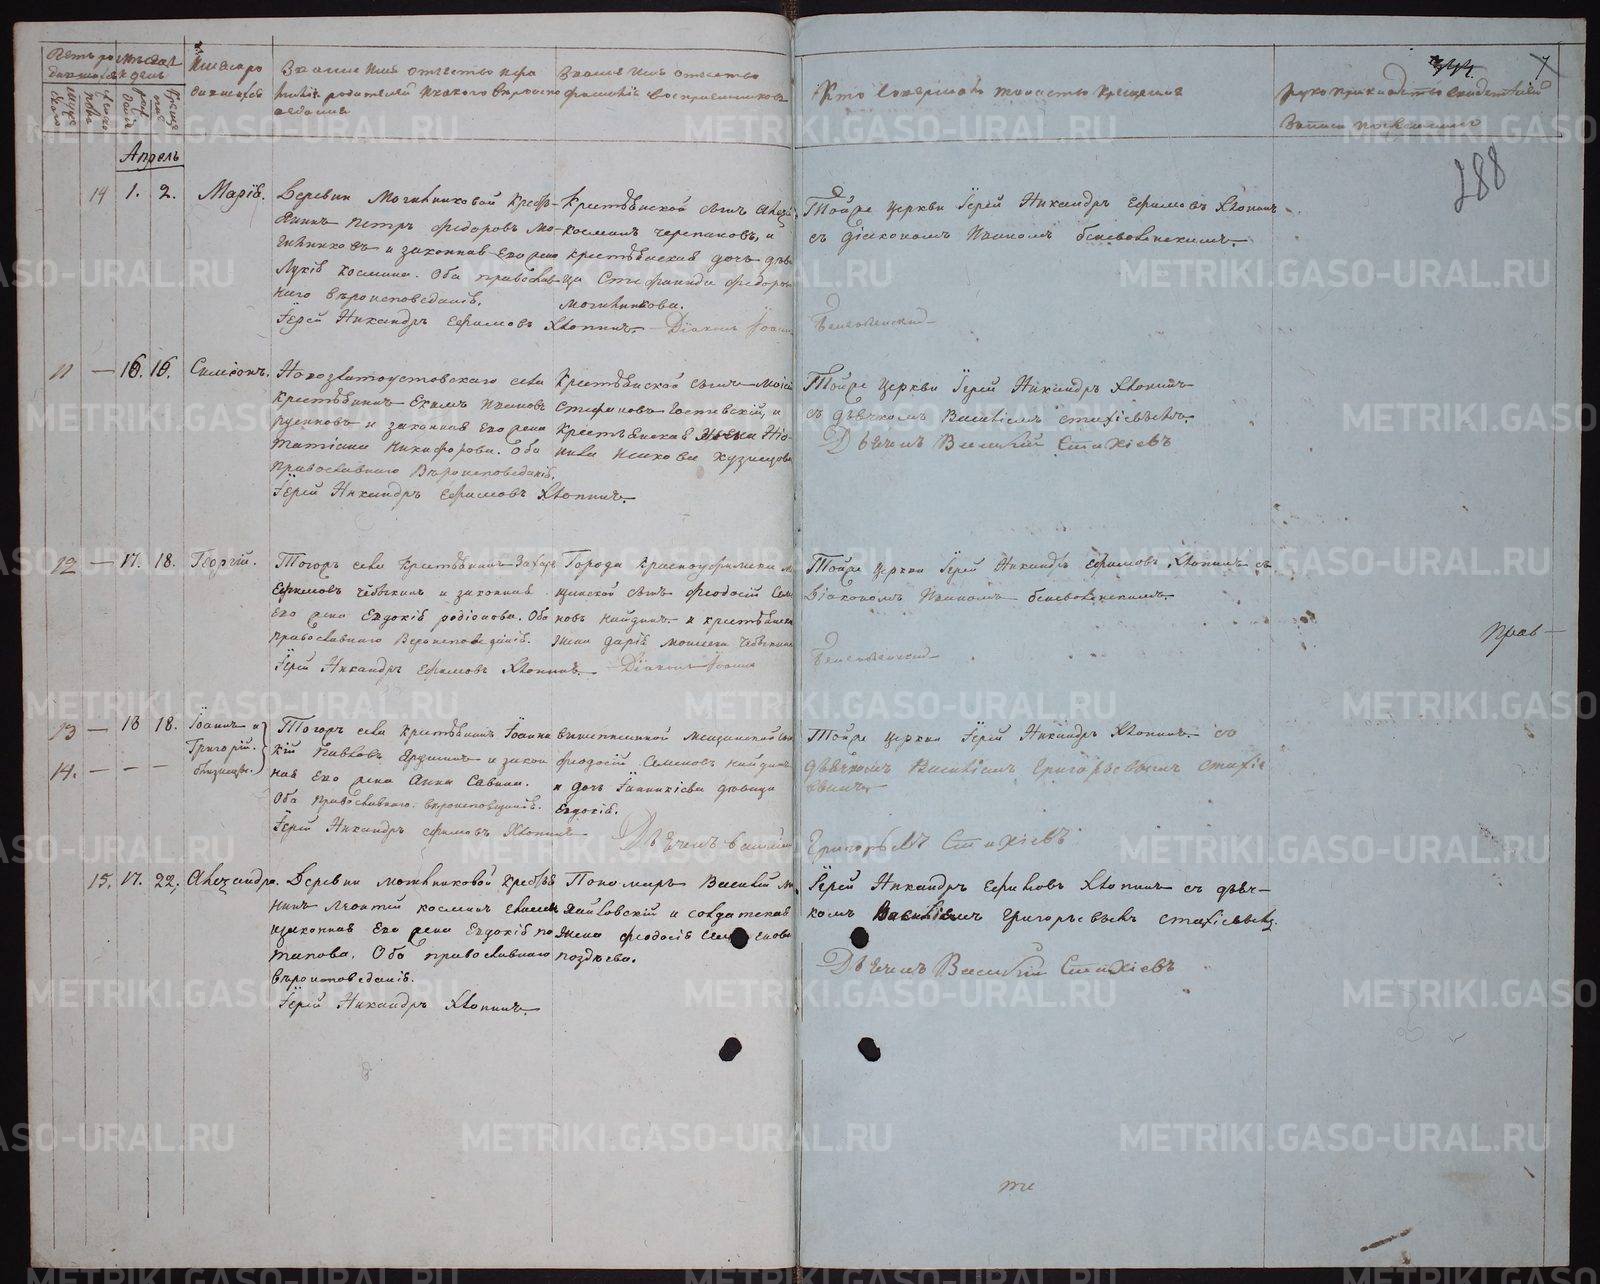 Звание имя отчество и фа
Звание имя отчество
милія родителей и какого вероиспо
фамилія воспріемниковъ
Кто совершалъ таинство крещенія
рукоприкладство свидетелей
записи по желанию
7
188
Апрель
14 1. 2. Маріѣ.
Деревни Могильниковой Кресть-
янинъ Петръ Федоровъ Мо-
гильниковъ и законная Его жена
Лукія Космина. Оба православ
наго вероисповеданія.
Іерей Никандръ Ефимовъ Хлопинъ. Діаконъ Іоаннъ
Крестьянской сынъ
Косминъ Черепановъ, и
крестьянская дочь деви
ца Стефанида Федоров
Могильникова.
Тойже церкви Іерей Никандръ Ефимовъ Хлопинъ
съ діакономъ Іоанномъ
11 — 16. 16. Симеонъ.
Новозлатоустовскаго села
Крестьянинъ Екимъ Ивановъ
и законная Его жена
Татіана Никифорова. Оба
Православнаго Вероисповеданія.
Іерей Никандръ Ефимовъ Хлопинъ.
Крестьянской сынъ Моисей
Стефановъ Гостевскій, и
Крестьянская
Исакова Кузнецова
Тойже церкви Іерей Никандръ Хлопинъ
съ дьячкомъ Василіемъ Стахіевымъ.
Дьячекъ Василій Стахіевъ
12 — 17. 18. Георгій.
Тогожъ села Крестьянинъ Захаръ
Ефимовъ Чебыкинъ и законная
Его жена Евдокія Родіонова. Оба
православнаго Вероисповеданія.
Іерей Никандръ Ефимовъ Хлопинъ. Діаконъ Іоаннъ
Города Красноуфимска М
щанской сынъ Феодосій Семе
новъ Найдинъ и крестьянска
жена Дарія Моисеева Чебыкина
Тойже церкви Іерей Никандръ Ефимовъ Хлопинъ съ
Діакономъ Іоанномъ
Прав—
13 — 18 18. Іоаннъ и
14. — — — Григорій.
близнецы.
Тогожъ села Крестьянинъ Іоанни
кій Павловъ и закон
ная Его жена Анна Савина.
Оба Православнаго вероисповеданія.
Іерей Никандръ Ефимовъ Хлопинъ
Вышеписанной Мещанской сын
Феодосій Семеновъ Найдинъ
и дочь Іанникіева девица
Евдокія.
Дьячекъ Василій
Тойже церкви Іерей Никандръ Хлопинъ со
дьячкомъ Василіемъ Григорьевымъ Стахіе
вымъ
Григорьевъ Стахіевъ
15. 17. 22. Александра.
Деревни Могильниковой Крестья
нинъ Леонтій Косминъ
и законная Его жена Евдокія По
тапова. Оба православнаго
вероисповеданія.
Іерей Никандръ Хлопинъ.
Пономарь Василій Ми
хайловскій и солдатская
жена Феодосія Семенова
Поздеева.
Іерей Никандръ Ефимовъ Хлопинъ съ дьяч-
комъ Василіемъ Григорьевымъ Стахіевымъ.
Дьячекъ Василій Стахіевъ
METRIKI.GASO-URAL.RU